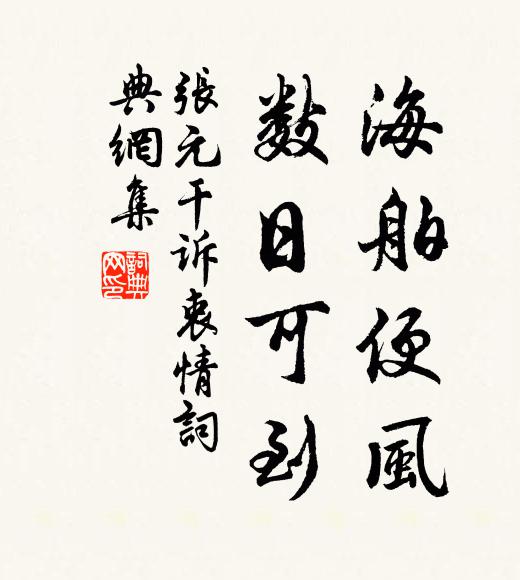 海舶便風
數日可到
張元干訴衷情詞
典網集
詞典網印